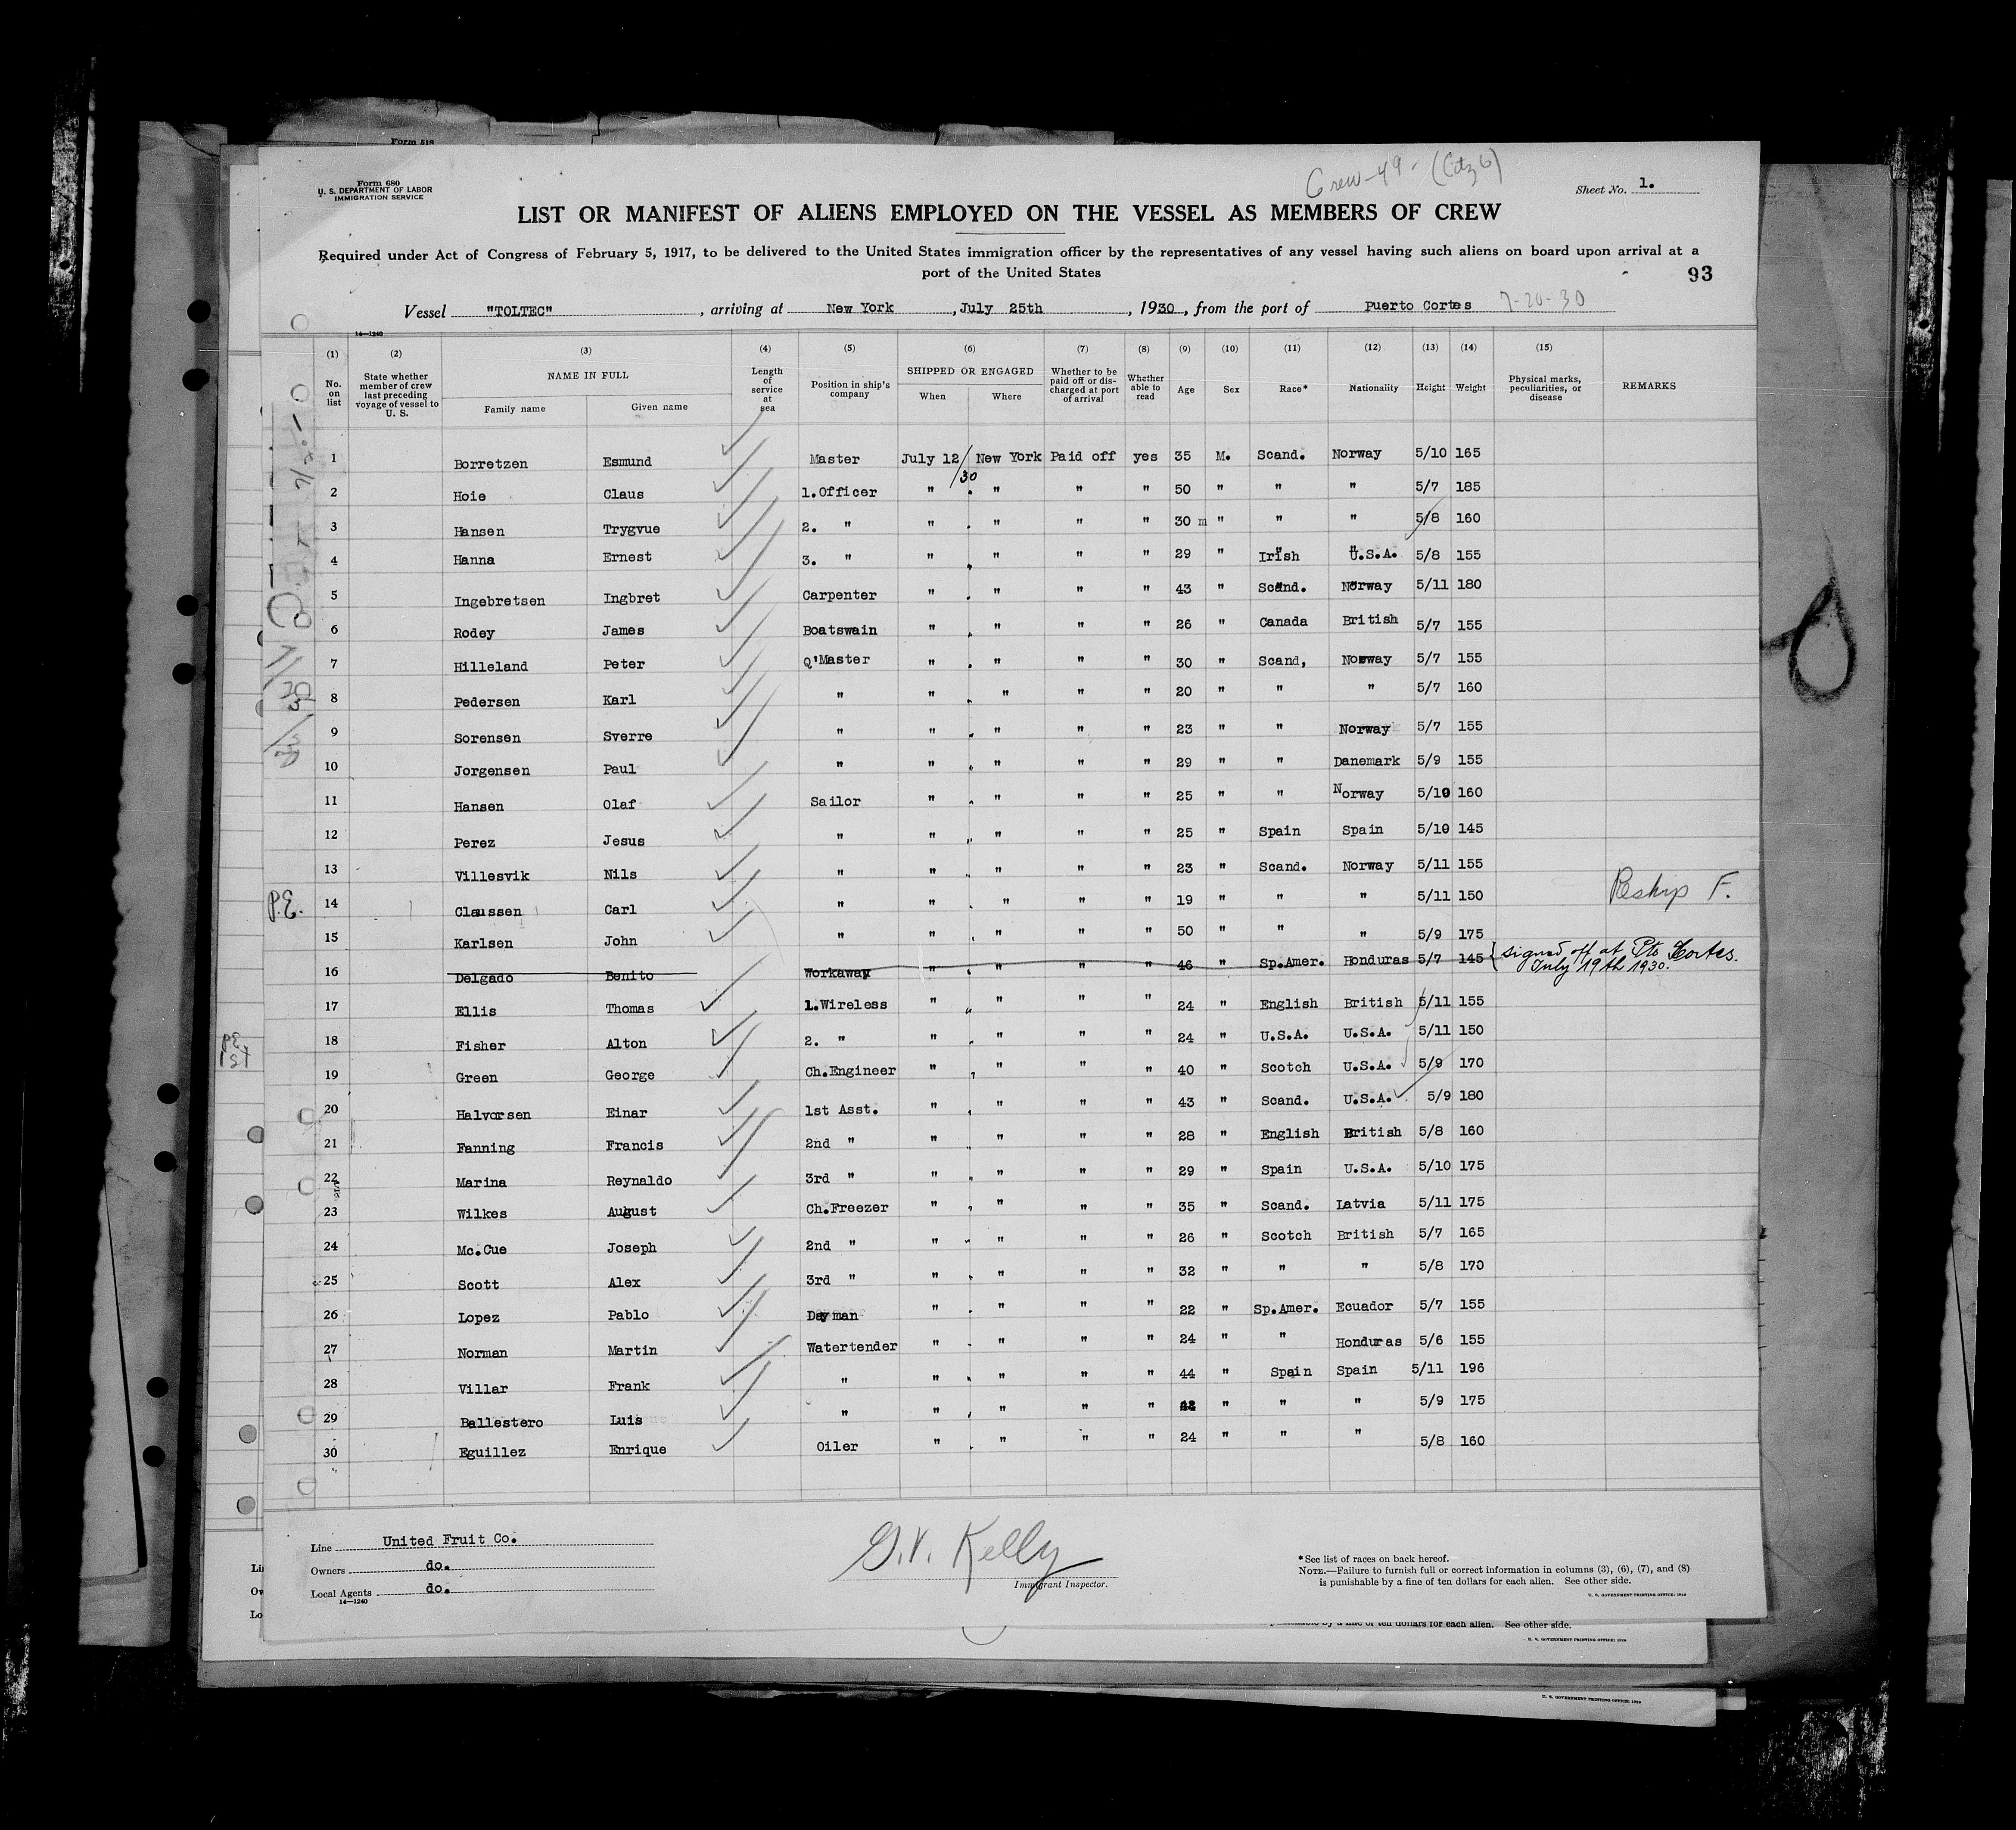 Form 518
Form 680
U. S. DEPARTMENT OF LABOR
IMMIGRATION SERVICE
Crew-49-(Citz 6)
Sheet No. 1.
LIST OR MANIFEST OF ALIENS EMPLOYED ON THE VESSEL AS MEMBERS OF CREW
Required under Act of Congress of February 5, 1917, to be delivered to the United States immigration officer by the representatives of any vessel having such aliens on board upon arrival at a
port of the United States
93
Vessel "TOLTEC", arriving at New York, July 25th, 1930, from the port of Puerto Cortes 7-20-30
14—1240
(1) (2) (3) (4) (5) (6) (7) (8) (9) (10) (11) (12) (13) (14) (15)
No. on list State whether member of crew last preceding voyage of vessel to U. S. NAME IN FULL Family name Given name Length of service at sea Position in ship's company SHIPPED OR ENGAGED When Where Whether to be paid off or discharged at port of arrival Whether able to read Age Sex Race* Nationality Height Weight Physical marks, peculiarities, or disease REMARKS
1 Borretzen Esmund Master July 12/30 New York Paid off yes 35 M. Scand. Norway 5/10 165
2 Hoie Claus 1.Officer " " " " 50 " " " 5/7 185
3 Hansen Trygvue 2. " " " " " 30 m " " " 5/8 160
4 Hanna Ernest 3. " " " " " 29 " Irish U.S.A. 5/8 155
5 Ingebretsen Ingbret Carpenter " " " " 43 " Scand. Norway 5/11 180
6 Rodey James Boatswain " " " " 26 " Canada British 5/7 155
7 Hilleland Peter Q'Master " " " " 30 " Scand, Norway 5/7 155
8 Pedersen Karl " " " " " 20 " " " 5/7 160
9 Sorensen Sverre " " " " " 23 " " Norway 5/7 155
10 Jorgensen Paul " " " " " 29 " " Danemark 5/9 155
11 Hansen Olaf Sailor " " " " 25 " " Norway 5/10 160
12 Perez Jesus " " " " " 25 " Spain Spain 5/10 145
13 Villesvik Nils " " " " " 23 " Scand. Norway 5/11 155
P.E. 14 Claussen Carl " " " " " 19 " " " 5/11 150 Reship F.
15 Karlsen John " " " " " 50 " " " 5/9 175
16 Delgado Benito Workaway " " " " 46 " Sp.Amer. Honduras 5/7 145 signed off at Pto Cortes. July 19th 1930.
17 Ellis Thomas 1.Wireless " " " " 24 " English British 5/11 155
18 Fisher Alton 2. " " " " " 24 " U.S.A. U.S.A. 5/11 150
19 Green George Ch.Engineer " " " " 40 " Scotch U.S.A. 5/9 170
20 Halvorsen Einar 1st Asst. " " " " 43 " Scand. U.S.A. 5/9 180
21 Fanning Francis 2nd " " " " " 28 " English British 5/8 160
22 Marina Reynaldo 3rd " " " " " 29 " Spain U.S.A. 5/10 175
23 Wilkes August Ch.Freezer " " " " 35 " Scand. Latvia 5/11 175
24 Mc.Cue Joseph 2nd " " " " " 26 " Scotch British 5/7 165
25 Scott Alex 3rd " " " " " 32 " " " 5/8 170
26 Lopez Pablo Dayman " " " " 22 " Sp.Amer. Ecuador 5/7 155
27 Norman Martin Watertender " " " " 24 " " Honduras 5/6 155
28 Villar Frank " " " " " 44 " Spain Spain 5/11 196
29 Ballestero Luis " " " " " " " " 5/9 175
30 Eguillez Enrique Oiler " " " " 24 " " " 5/8 160
Line United Fruit Co.
Owners do.
Local Agents do.
14—1240
G.V. Kelly
Immigrant Inspector.
*See list of races on back hereof.
NOTE.—Failure to furnish full or correct information in columns (3), (6), (7), and (8)
is punishable by a fine of ten dollars for each alien. See other side.
U. S. GOVERNMENT PRINTING OFFICE: 1929
for each alien. See other side.
U. S. GOVERNMENT PRINTING OFFICE: 1929
U. S. GOVERNMENT PRINTING OFFICE: 1929